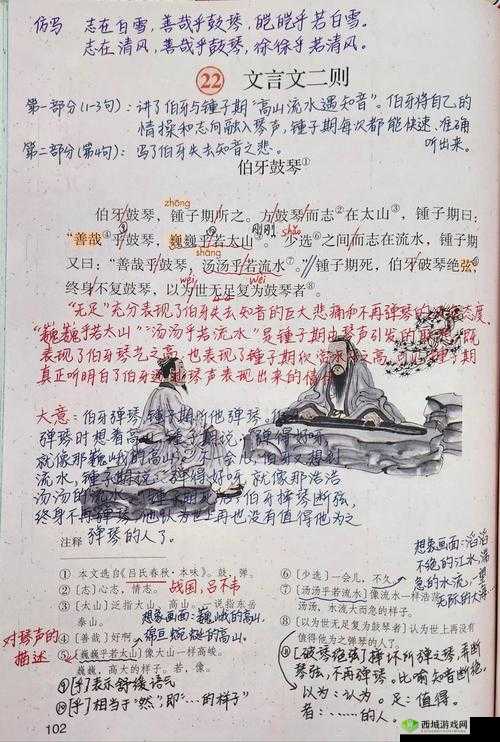 仿写 志在白雪，善哉乎鼓琴，皑皑乎若白雪。
志在清风，善哉乎鼓琴，徐徐乎若清风。
22 文言文二则
第一部分(1-3句)：讲了伯牙与锺子期“高山流水遇知音”。伯牙将自己的
情操和志向融入琴声，锺子期每次都能快速、准确
听出来。
第二部分(第4句)：写了伯牙失去知音之悲。
伯牙鼓琴①
zhōng
伯牙鼓琴，锺子期听之。方鼓琴而志②在太山③，锺子期曰：
“善哉④乎鼓琴，巍巍乎若太山⑤。”少选⑥之间而志在流水，锺子期
shāng
又曰：“善哉乎鼓琴，汤汤乎若流水⑦。”锺子期死，伯牙破琴绝弦，
wéi wèi
终身不复鼓琴，以为世无足复为鼓琴者⑧。
“无足”充分表现了伯牙失去知音的巨大悲痛和不再弹琴的 态度，
“巍巍乎若太山”“汤汤乎若流水”是锺子期由琴声引发的 既
表现了伯牙琴艺之高，也表现了锺子期 之高， 锺子期
真正听明白了伯牙 琴声表现出来的情
大意：伯牙弹琴，锺子期听他弹琴。
弹琴时想着高 锺子期说：弹得好呀，
就像那巍峨的高山 会儿，伯牙又想到
流水，锺子期 弹得好 就像那浩浩
汤汤的流水 伯牙摔琴断弦，
终身不再弹琴，他认为世上再也没有值得他为之
弹琴的人了。
注释
① 本文选自《吕氏春秋·本味》。鼓，弹。
② 〔志〕心志，情志。 战国，吕不韦
③ 〔太山〕泛指大山、高山。一说指东岳
泰山。
想象画面：巍峨的高山，
绵亘蜿蜒的高山。
④ 〔善哉〕好啊。
⑤ 〔巍巍乎若太山〕像大山一样高峻。
巍巍，高大的样子。若，像。
对琴声的
描述
⑨〔乎〕表示舒缓语气
〔乎〕相当于“然”，即“……的样子”
⑥ 〔少选〕一会儿，不久。
⑦ 〔汤汤乎若流水〕像流水一样浩荡。汤
汤，水流大而急的样子。
⑧ 〔以为世无足复为鼓琴者〕认为世上再没有
值得他为之弹琴的人了。
想象画面：滔滔
不绝的江水，湍
急的水流，一望
无际的大海
〔破琴绝弦〕摔坏所弹之琴，弄断
琴弦，不再弹琴。比喻知音断绝。
以为：认为。足：值得。
者：……的人。
102
西城游戏网